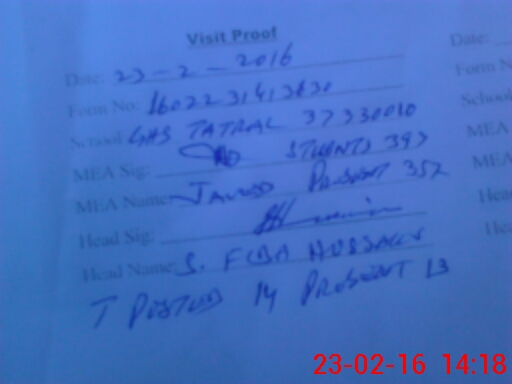 Visit Proof
Date: 23-2-2016
Date:
Form No: 1602231413830
Form N
School GHS TATRAL 37330010
School
MEA Sig: STUENTS 397
MEA
MEA Name: JAVED PRESENT 352
MEA
Head Sig:
Head
Head Name: S. FIDA HUSSAIN
He
T POSTED 14 PRESENT 13
23-02-16 14:18